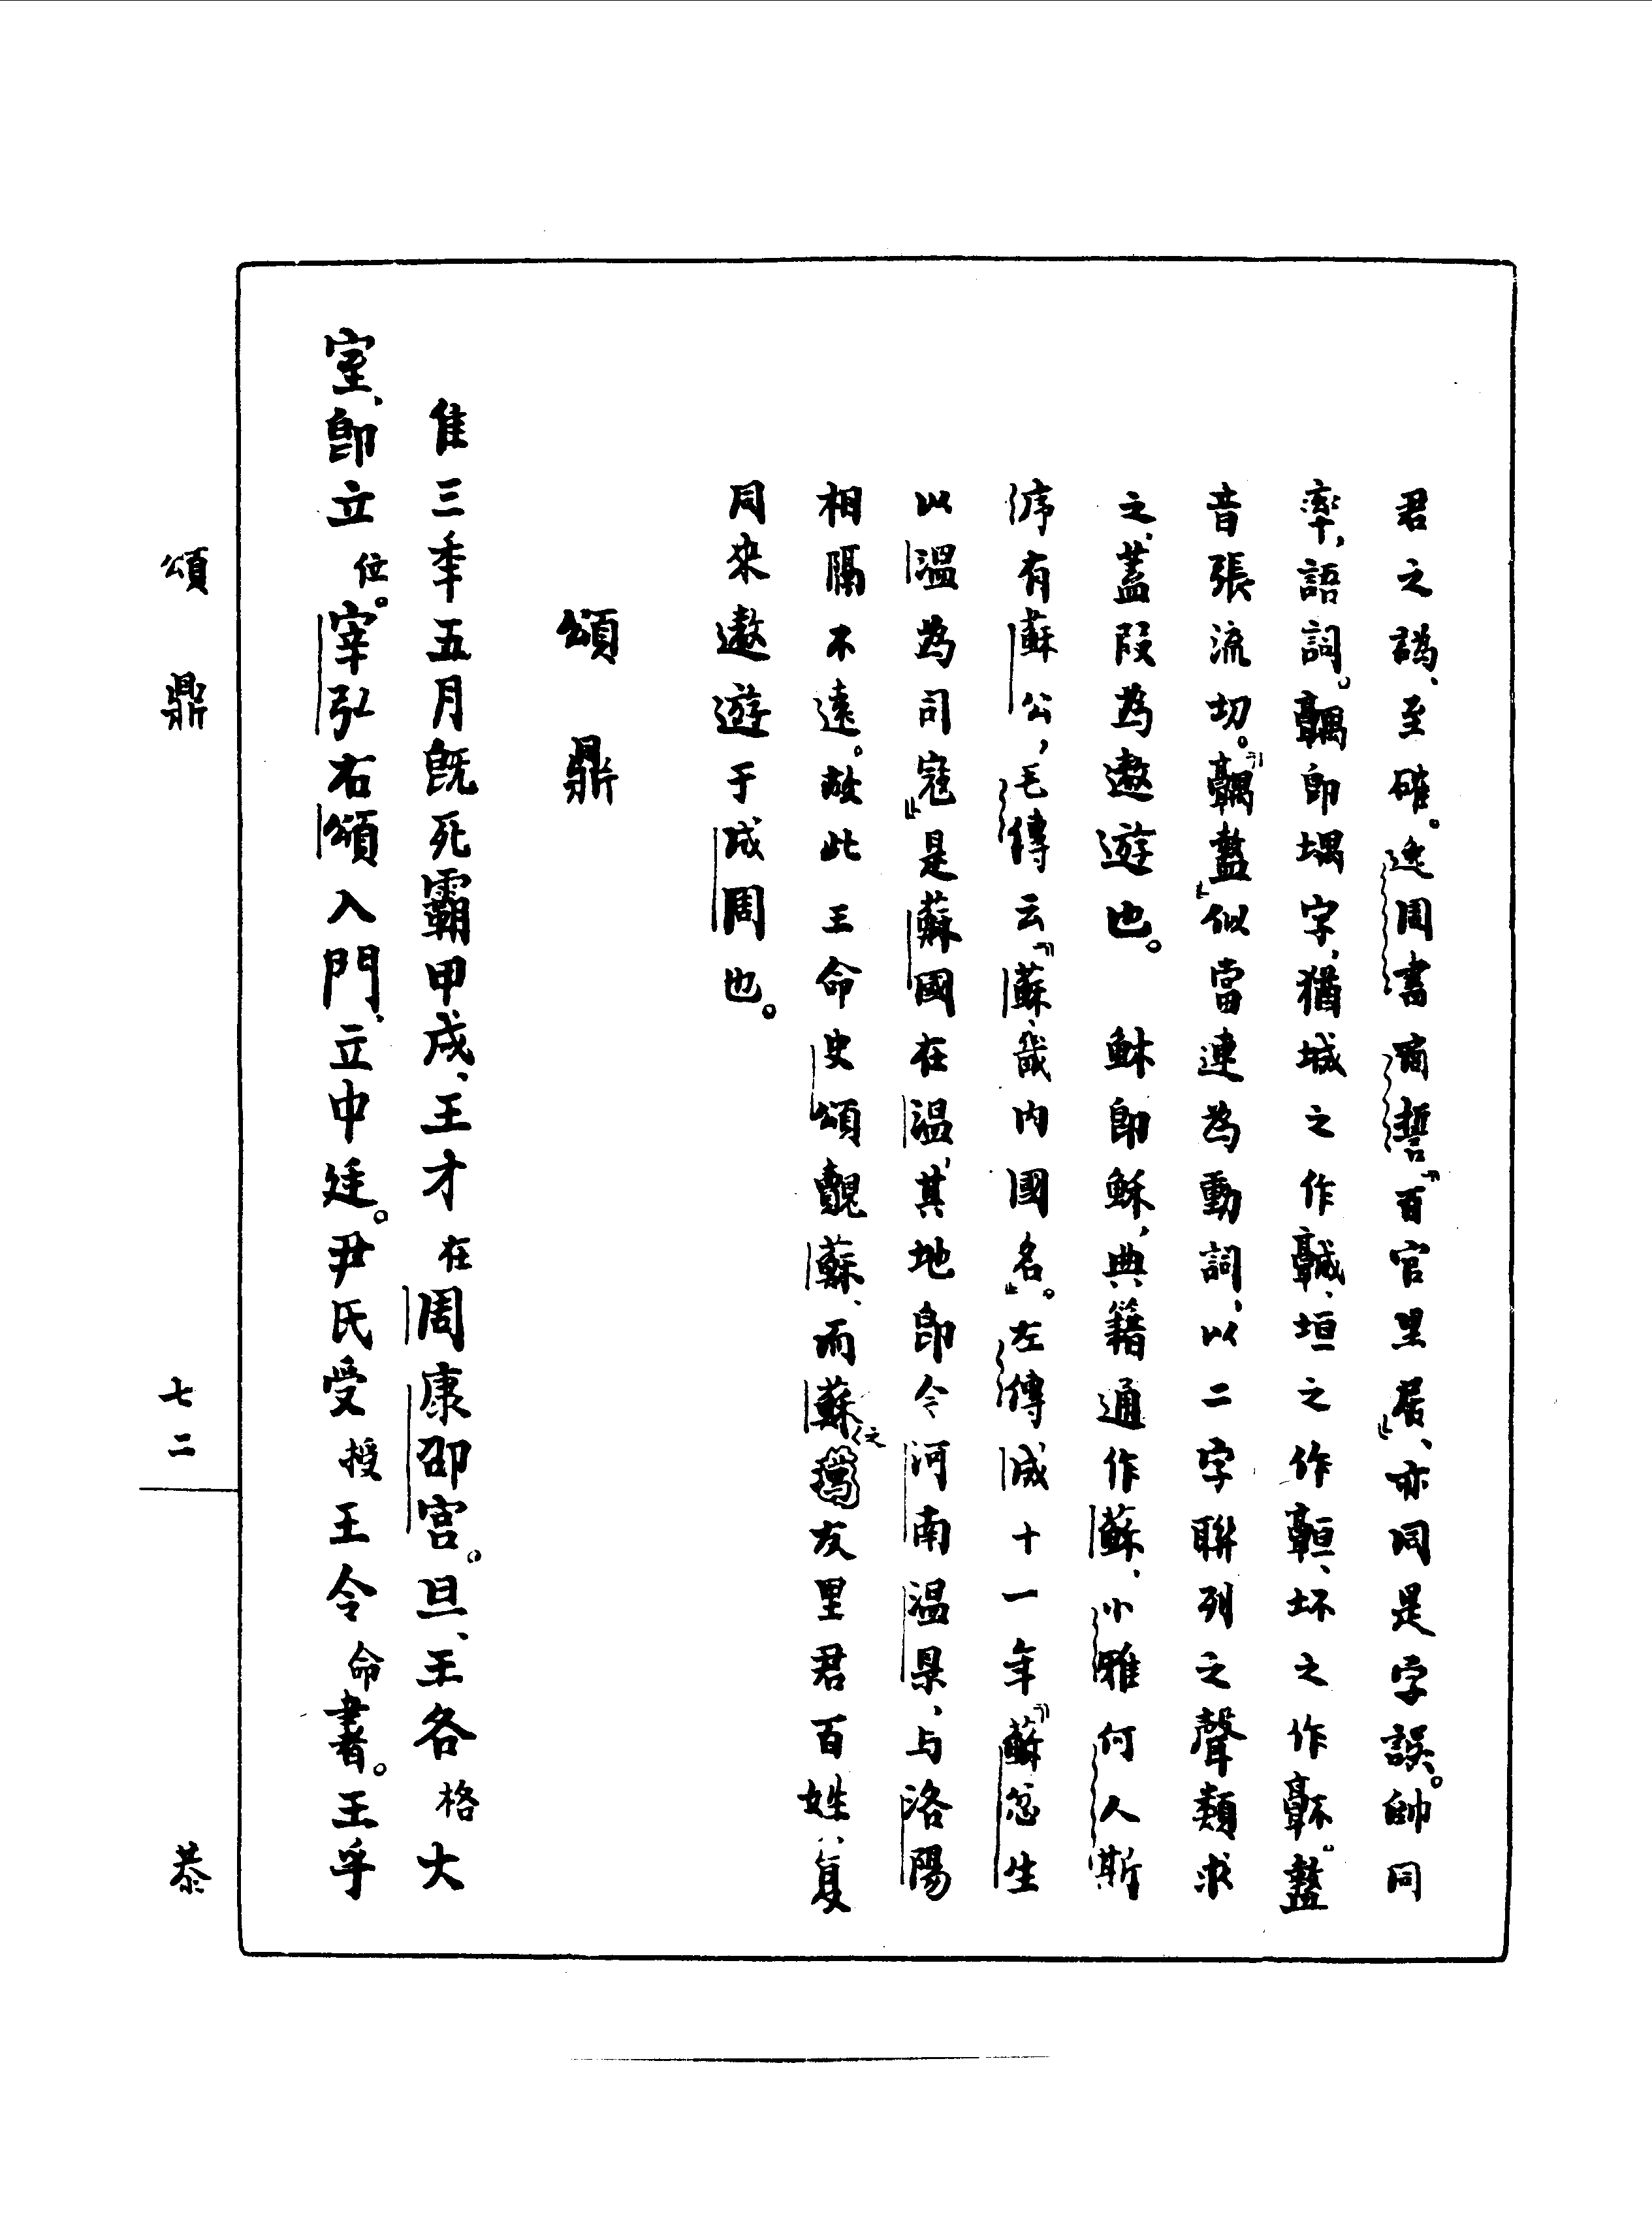 君之譌、至確。逸周書商誓『百官里居』、亦同是字誤。帥同
率,語詞。𩫨即堣字,猶城之作𩫨、垣之作𩫫、坏之作𩫯。盩
音張流切。『盩』似當連為動詞、以二字聯列之聲類求
之、蓋叚為遨遊也。 穌即穌,典籍通作蘇、小雅何人斯
序有蘇公,毛傳云『蘇、畿内國名』。左傳成十一年『蘇忿生
以溫為司寇』是蘇國在温,其地即今河南温県、与洛陽
相隔不遠。故此王命史頌覿蘇、而蘇之友里君百姓、复
同來遨遊于成周也。
頌鼎
隹三年五月既死霸甲戌、王才在周康卲宮。旦、王各格大
室、即立位。宰弘右頌入門、立中廷。尹氏受授王令命書。王乎
頌鼎 七二 恭